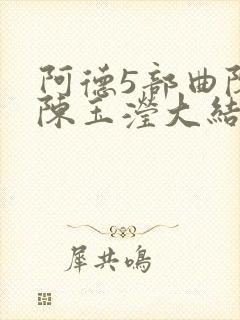 阿德5部曲
陳玉瀅大結
犀共鳴